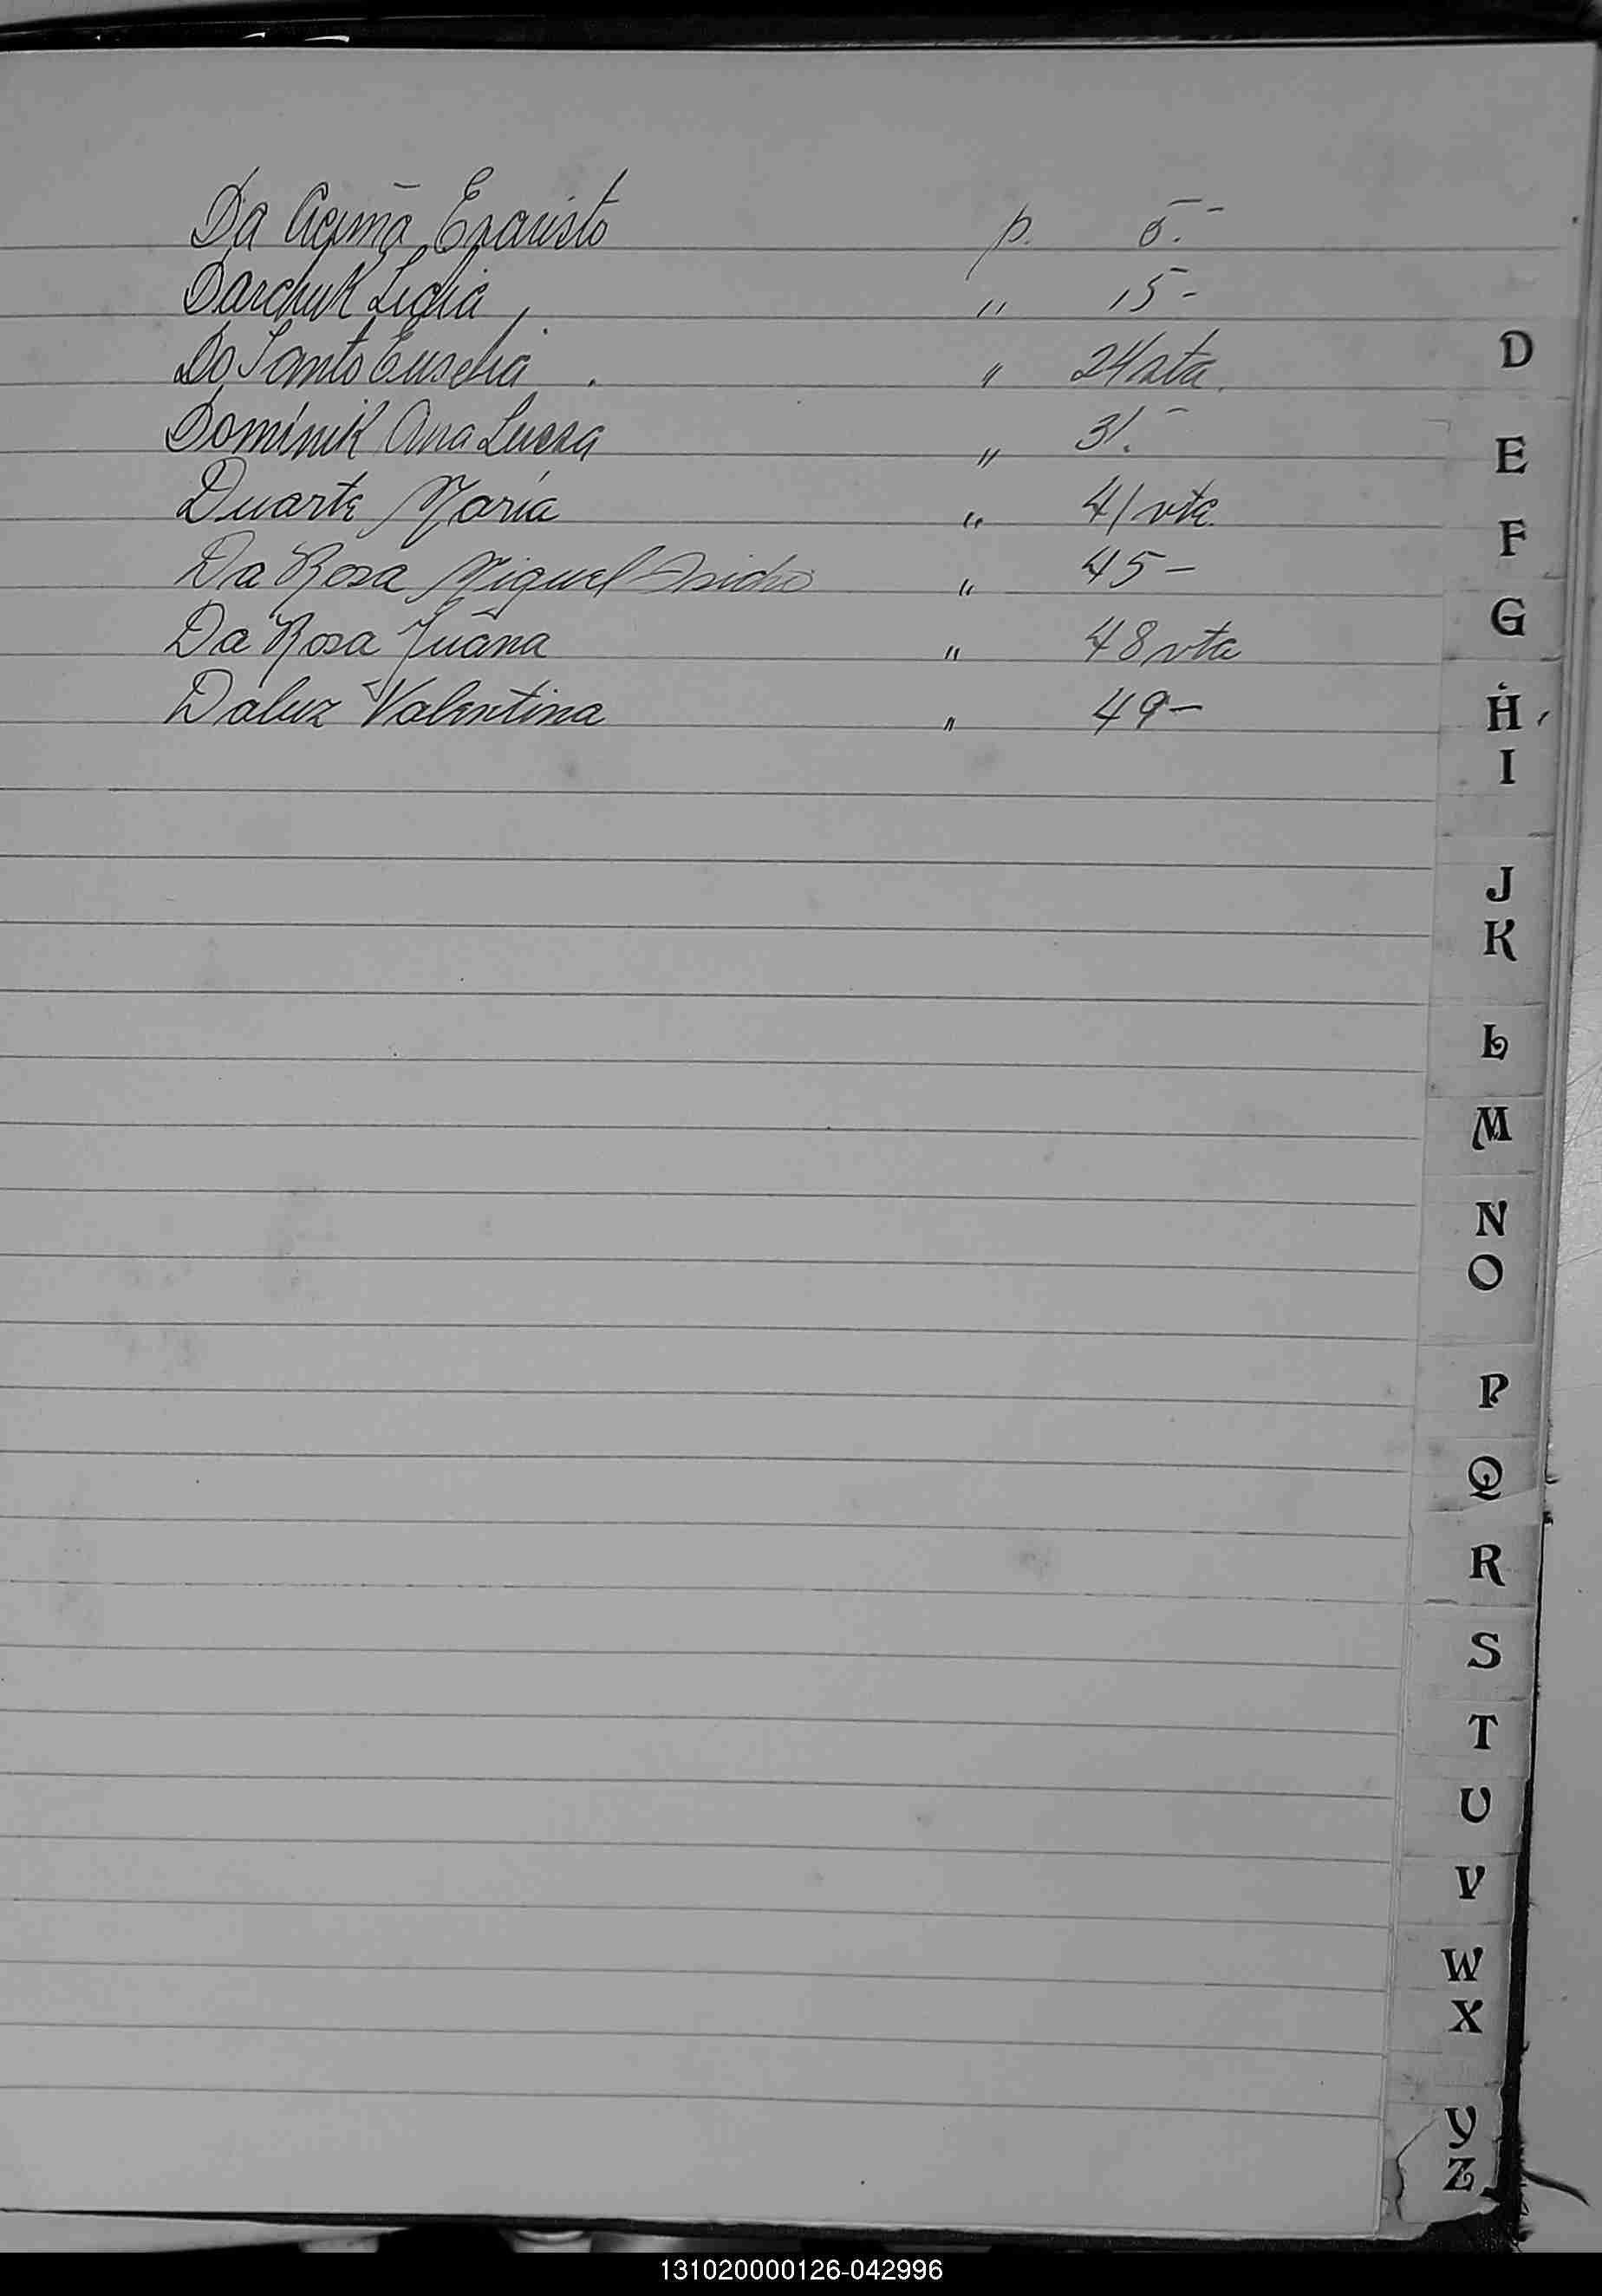 Da Acuña Evaristo p. 5.-
Darchuk Lidia " 15-
Do Santo Eusebia " 24 vta.
Dominik Ana Luisa " 31.-
Duarte María " 41 vta.
Da Rosa Miguel Isidro " 45-
Da Rosa Juana " 48 vta
Daluz Valentina " 49-
D
E
F
G
H
I
J
K
L
M
N
O
P
Q
R
S
T
U
V
W
X
Y
Z
131020000126-042996